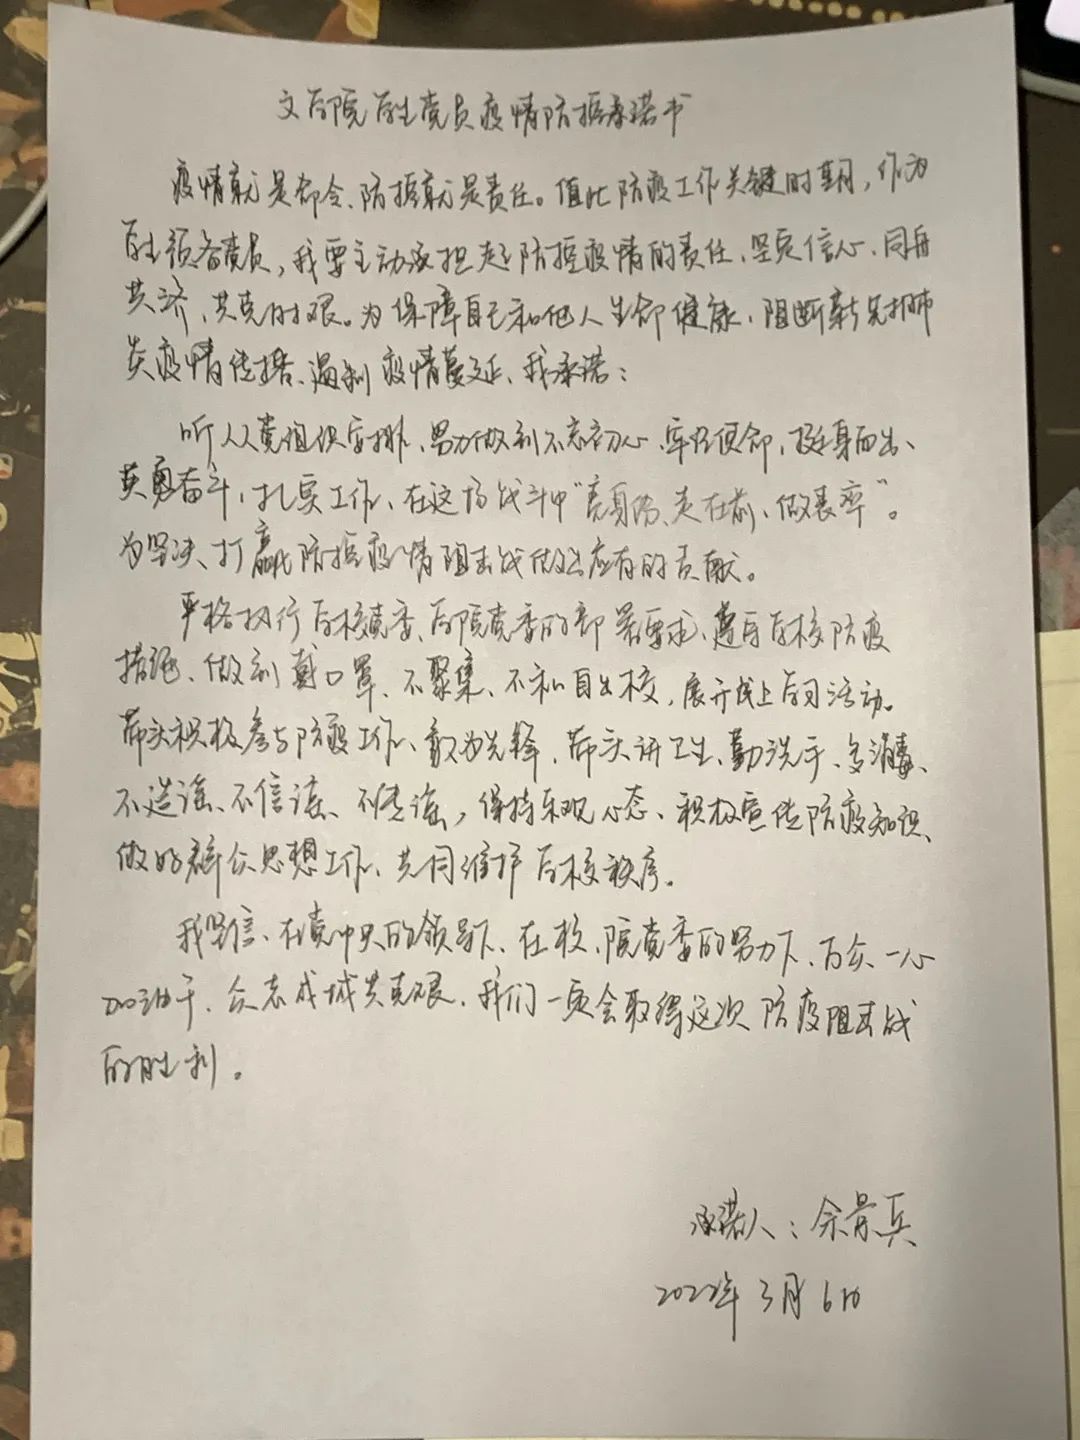 文学院学生党员疫情防控承诺书
疫情就是命令、防控就是责任。值此防疫工作关键时期，作为
学生预备党员，我要主动承担起防控疫情的责任、坚定信心、同舟
共济、共克时艰。为保障自己和他人生命健康、阻断新冠肺
炎疫情传播、遏制疫情蔓延、我承诺：
听从党组织安排、努力做到不忘初心、牢记使命、挺身而出、
英勇奋斗、扎实工作、在这场战斗中“亮身份、走在前、做表率”。
为坚决打赢防控疫情阻击战做出应有的贡献。
严格执行学校党委、学院党委的部署要求、遵守学校防疫
措施、做到戴口罩、不聚集、不私自出校，展开线上学习活动。
带头积极参与防疫工作、敢为先锋，带头讲卫生、勤洗手、多消毒、
不造谣、不信谣、不传谣，保持乐观心态、积极宣传防疫知识、
做好群众思想工作、共同维护学校秩序。
我坚信、在党中央的领导下、在校、院党委的努力下、万众一心
加油干、众志成城共克艰、我们一定会取得这次防疫阻击战
的胜利。
承诺人：余景兵
2022年3月6日